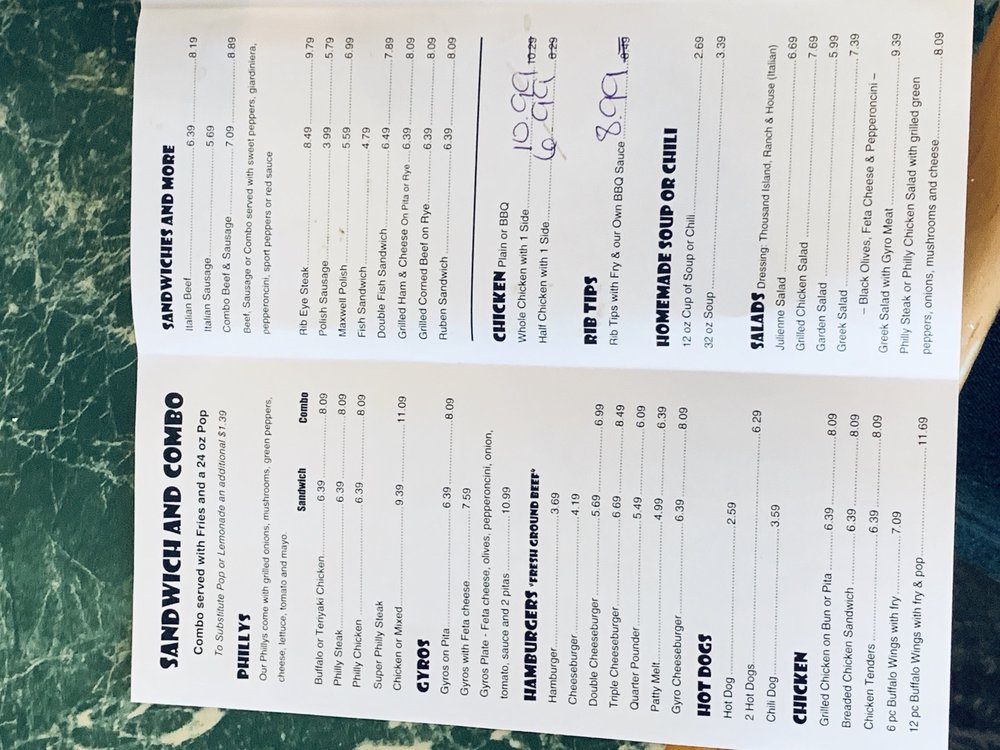 SANDWICH AND COMBO
Combo served with Fries and a 24 oz Pop
To Substitute Pop or Lemonade an additional $1.39
PHILLYS
Our Phillys come with grilled onions, mushrooms, green peppers,
cheese, lettuce, tomato and mayo.
Sandwich Combo
Buffalo or Teriyaki Chicken 6.39 8.09
Philly Steak 6.39 8.09
Philly Chicken 6.39 8.09
Super Philly Steak
Chicken or Mixed 9.39 11.09
GYROS
Gyros on Pita 6.39 8.09
Gyros with Feta cheese 7.59
Gyros Plate - Feta cheese, olives, pepperoncini, onion,
tomato, sauce and 2 pitas 10.99
HAMBURGERS *FRESH GROUND BEEF*
Hamburger 3.69
Cheeseburger 4.19
Double Cheeseburger 5.69 6.99
Triple Cheeseburger 6.69 8.49
Quarter Pounder 5.49 6.09
Patty Melt 4.99 6.39
Gyro Cheeseburger 6.39 8.09
HOT DOGS
Hot Dog 2.59
2 Hot Dogs 6.29
Chili Dog 3.59
CHICKEN
Grilled Chicken on Bun or Pita 6.39 8.09
Breaded Chicken Sandwich 6.39 8.09
Chicken Tenders 6.39 8.09
6 pc Buffalo Wings with fry 7.09
12 pc Buffalo Wings with fry & pop 11.69
SANDWICHES AND MORE
Italian Beef 6.39 8.19
Italian Sausage 5.69
Combo Beef & Sausage 7.09 8.89
Beef, Sausage or Combo served with sweet peppers, giardiniera,
pepperoncini, sport peppers or red sauce
Rib Eye Steak 8.49 9.79
Polish Sausage 3.99 5.79
Maxwell Polish 5.59 6.99
Fish Sandwich 4.79
Double Fish Sandwich 6.49 7.89
Grilled Ham & Cheese On Pita or Rye 6.39 8.09
Grilled Corned Beef on Rye 6.39 8.09
Ruben Sandwich 6.39 8.09
CHICKEN Plain or BBQ
Whole Chicken with 1 Side 10.99 10.29
Half Chicken with 1 Side 6.99 6.29
RIB TIPS
Rib Tips with Fry & our Own BBQ Sauce 8.99
HOMEMADE SOUP OR CHILI
12 oz Cup of Soup or Chili 2.69
32 oz Soup 3.39
SALADS Dressing: Thousand Island, Ranch & House (Italian)
Julienne Salad 6.69
Grilled Chicken Salad 7.69
Garden Salad 5.99
Greek Salad 7.39
– Black Olives, Feta Cheese & Pepperoncini –
Greek Salad with Gyro Meat 9.39
Philly Steak or Philly Chicken Salad with grilled green
peppers, onions, mushrooms and cheese 8.09